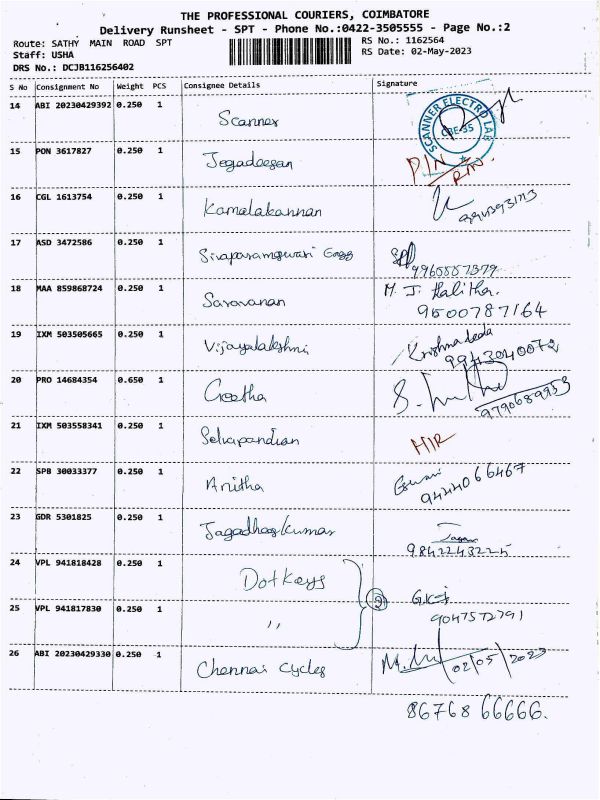 THE PROFESSIONAL COURIERS, COIMBATORE
Delivery Runsheet - SPT - Phone No.:0422-3505555 - Page No.:2
Route: SATHY MAIN ROAD SPT RS No.: 1162564
Staff: USHA RS Date: 02-May-2023
DRS No.: DCJB116256402
S No Consignment No Weight PCS Consignee Details Signature
14 ABI 20230429392 0.250 1 Scanner SCANNER ELECTRO LAB CBE-35
15 PON 3617827 0.250 1 Jegadeesan
16 CGL 1613754 0.250 1 Kamalakannan
17 ASD 3472586 0.250 1 Sivaparameswari Engg
18 MAA 859868724 0.250 1 Saravanan M. J. Lalitha.
9500787164
19 IXM 503505665 0.250 1 Vijayalakshmi
9943040072
20 PRO 14684354 0.650 1 Geetha
9790689953
21 IXM 503558341 0.250 1 Selvapandian
22 SPB 30033377 0.250 1 Anitha
9444066467
23 GDR 5301825 0.250 1 Jagadheeskumar
9842243225
24 VPL 941818428 0.250 1 Dotkeys
25 VPL 941817830 0.250 1 " 2
9047572791
26 ABI 20230429330 0.250 1 Chennai Cycles 02/05/2023
86768 66666.